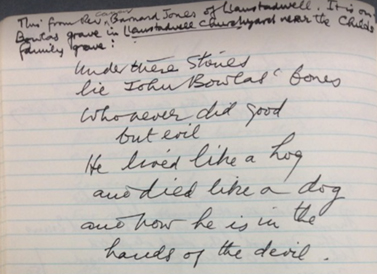 This from Rev. Barnard Jones of Llanstadwell. It is on
Bowlas grave in Llanstadwell Churchyard near the Childs
family grave:
Under these Stones
lie John Bowlas' bones
Who never did good
but evil
He lived like a hog
and died like a dog
and now he is in the
hands of the devil.